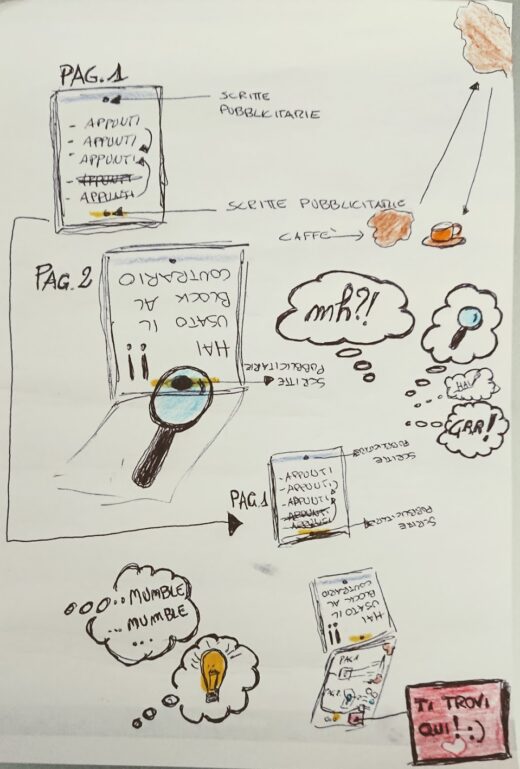 PAG.1
SCRITTE
PUBBLICITARIE
- APPUNTI
- APPUNTI
- APPUNTI
- APPUNTI
- APPUNTI
SCRITTE PUBBLICITARIE
CAFFÈ
PAG.2
HAI
USATO IL
BLOCK AL
CONTRARIO
!!
SCRITTE
PUBBLICITARIE
mh?!
HAI
GRR!
PAG.1
SCRITTE
PUBBLICITARIE
- APPUNTI
- APPUNTI
- APPUNTI
- APPUNTI
- APPUNTI
SCRITTE
PUBBLICITARIE
... MUMBLE
MUMBLE
...
HAI
USATO IL
BLOCK AL
CONTRARIO
!!
PAG.1
TI TROVI
QUI! :)